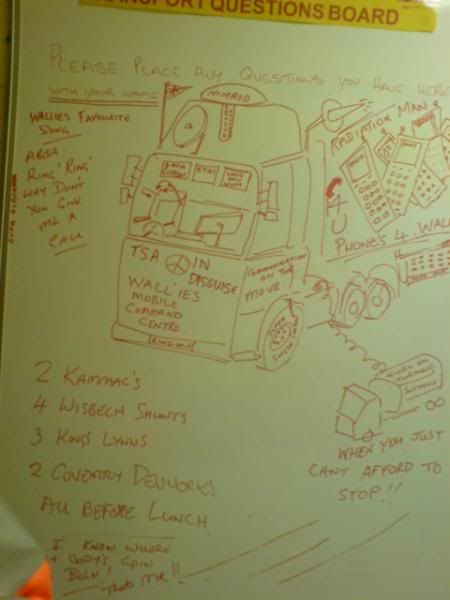 TRANSPORT QUESTIONS BOARD
PLEASE PLACE ANY QUESTIONS YOU HAVE HERE
WITH YOUR NAME
WALLIES FAVOURITE
SONG
ABBA.
RING 'RING'
WHY DON'T
YOU GIVE
ME A
CALL
NIMROD
RADIATION MAN
C4U
PHONE'S 4. WAL
TSA IN
DISGUISE
WALL'IES
MOBILE
COMMAND
CENTRE
COMMUNICATION
ON THE
MOVE.!
2 KAMMAC'S
4 WISBECH SHUNTS
3 KINGS LYNNS
2 COVENTRY DELIVERIES
ALL BEFORE LUNCH
WHEN YOU JUST
CANT AFFORD TO
STOP!!
I KNOW WHERE
BEEN!
THATS